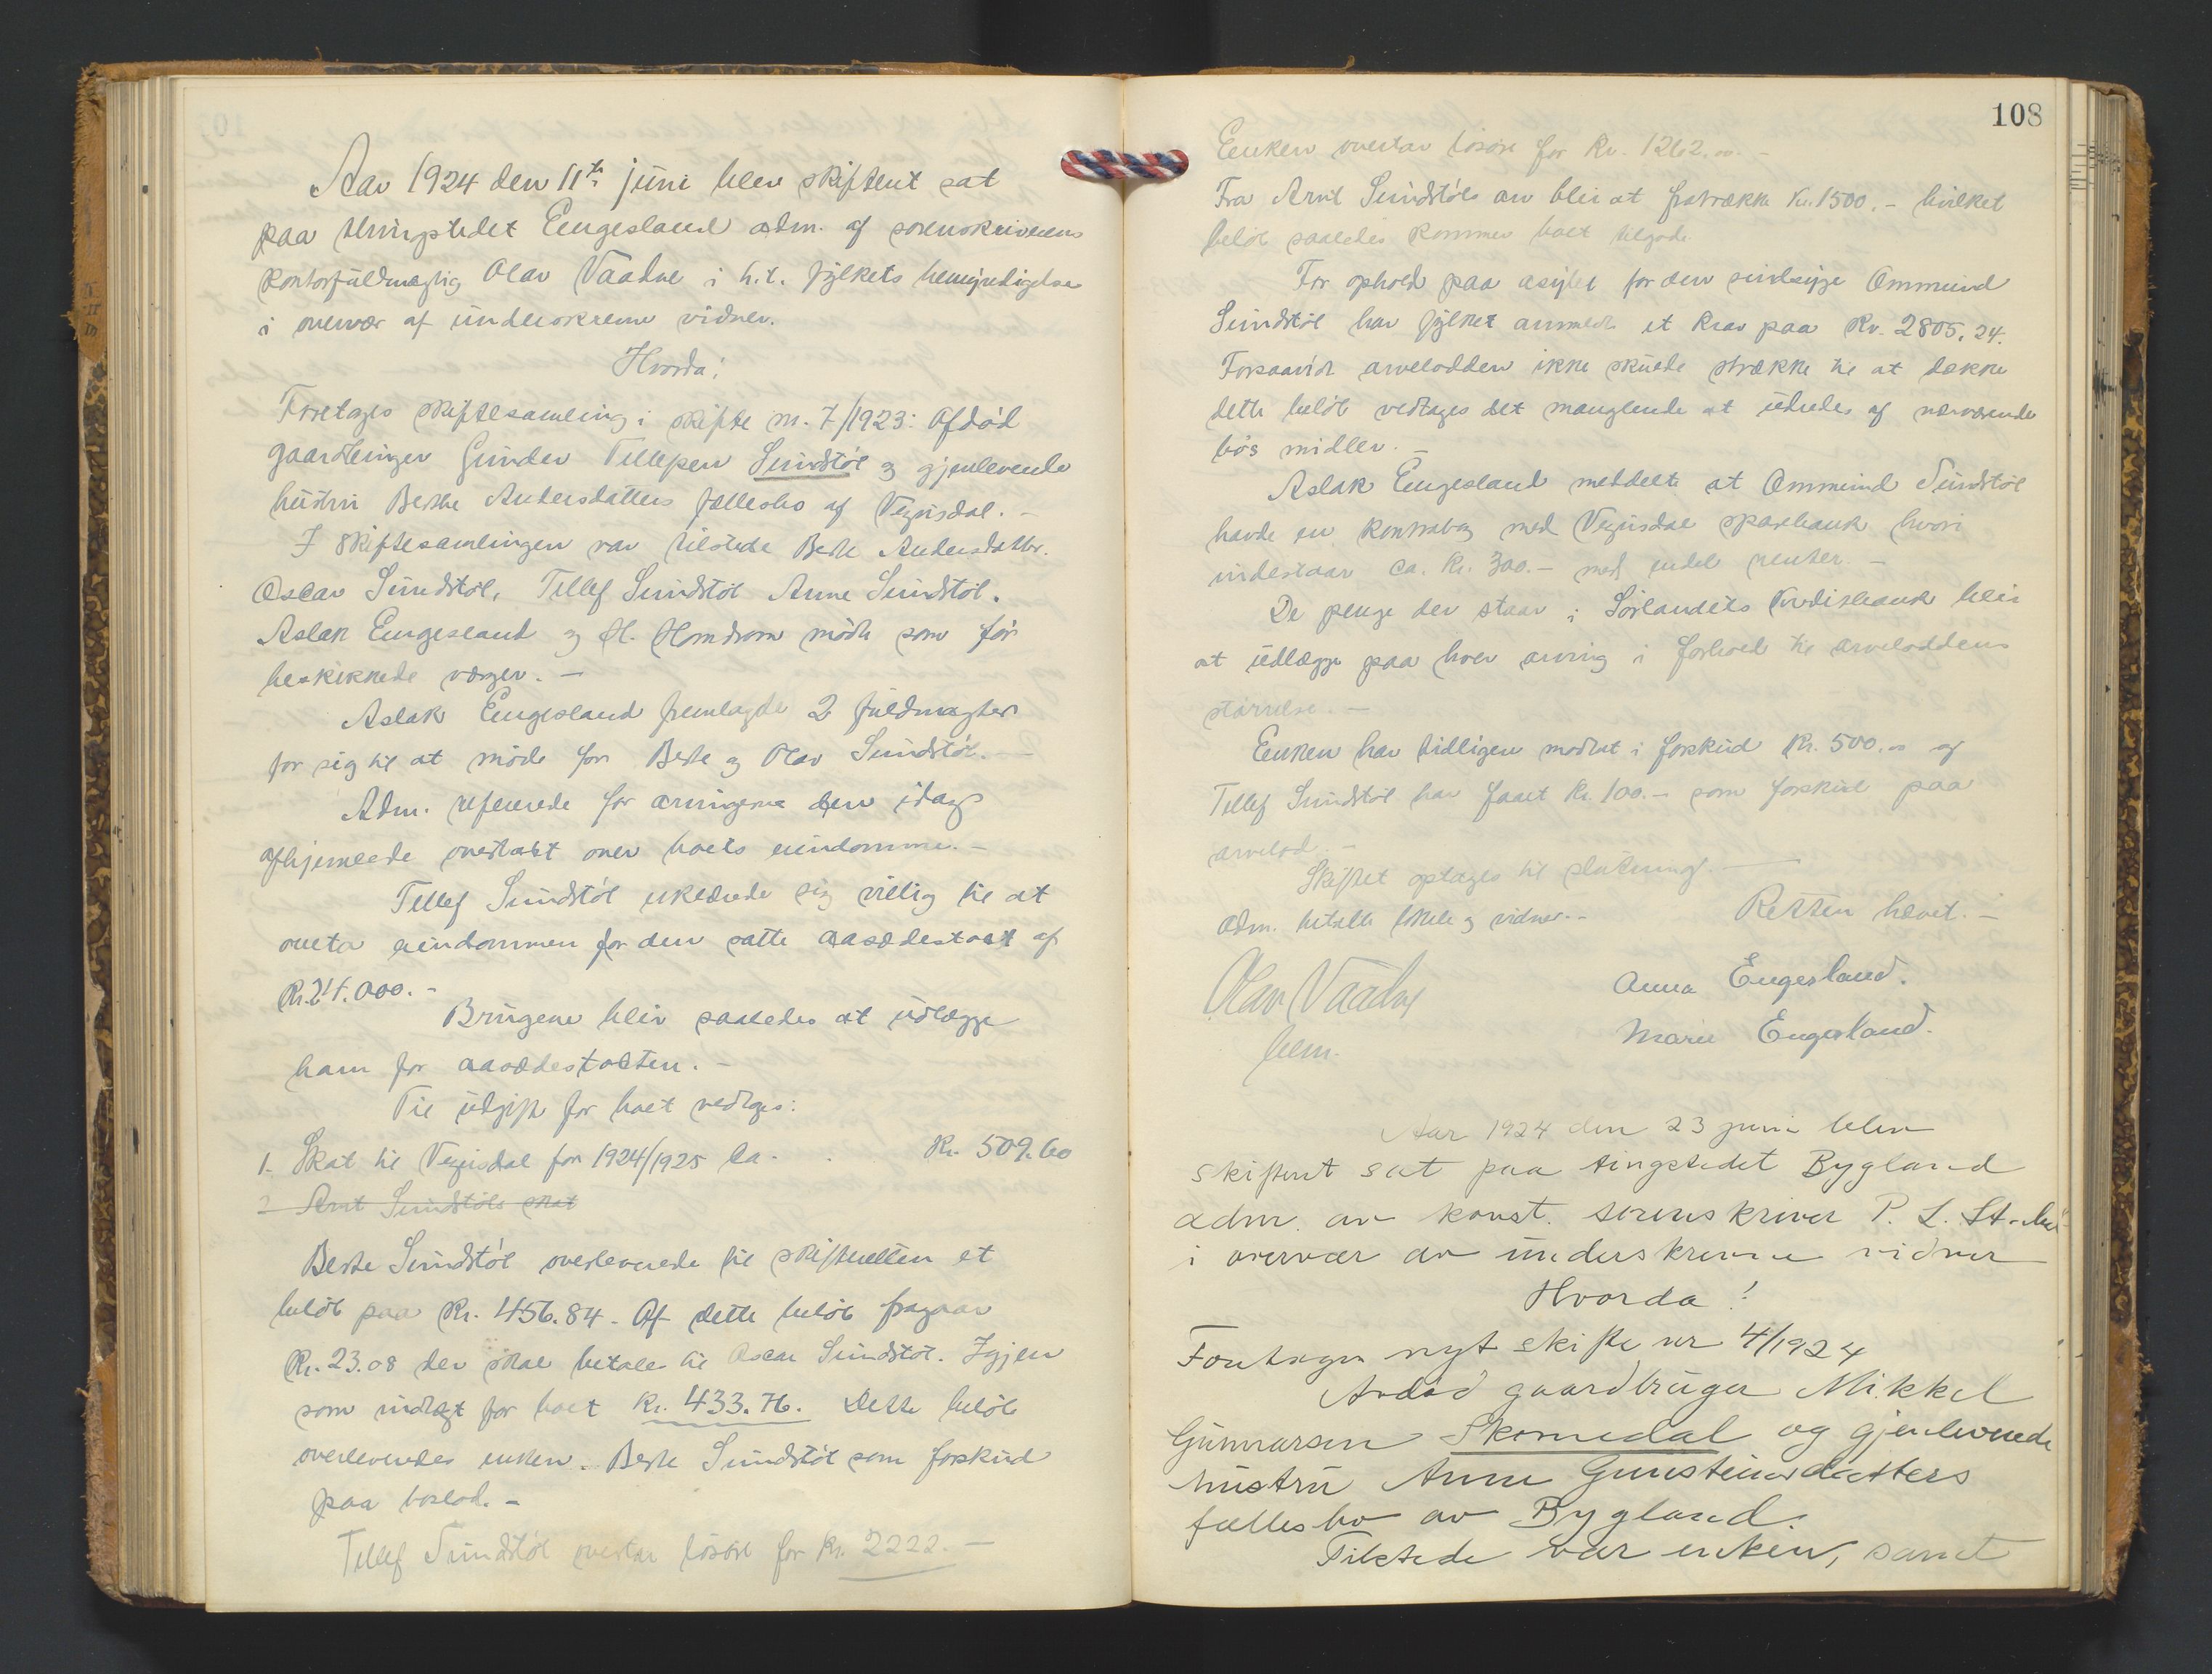 Aar 1924 den 11te juni blev skifteret sat
paa thingstedet Engesland adm. af sorenskriverens
kontorfuldmægtig Olav Vaadne i h.t. fylkets bemyndigelse
i overvær af underskrevne vidner.
Hvorda:
Foretages skiftesamling i skifte nr. 7/1923: Afdöd
gaardbruger Gunder Tellefsen Sundstöl og gjenlevende
hustru Berthe Andersdatters fællesbo af Vegusdal. -
I skiftesamlingen var tilstede Berte Andersdatter.
Oscar Sundstöl, Tellef Sundstöl Anne Sundstöl.
Aslak Engesland og H. Homdrom mödte som för
beskikkede værger. -
Aslak Engesland fremlagde 2 fuldmagter
for sig til at möde for Berte og Olav Sundstöl. -
Adm. refererede for arvingerne den idag
afhjemlede overtakst over boets eiendomme. -
Tellef Sundstöl erklærede sig villig til at
overta eiendommen for den satte aasædestakst af
Kr. 24.000. -
Brugene blir saaledes at udlægge
ham for aasædestaksten. -
Til udgift for boet vedtages:
1. Skat til Vegusdal for 1924/1925 ca. . Kr. 509.60
2 Arnt Sundstöls skat
Berte Sundstöl overleverede til skifteretten et
belöb paa Kr. 456.84 - Af dette belöb fragaar
Kr. 23.08 der skal betales til Oscar Sundstöl. Igjen
som indtægt for boet Kr. 433.76. Dette belöb
overleveredes enken Berte Sundstöl som forskud
paa boslod. -
Tellef Sundstöl overtar lösöre for Kr. 2222. -
108
Enken overtar lösöre for Kr. 1262.00. -
Fra Arnt Sundstöls arv blir at fratrække Kr. 1500. - hvilket
belöb saaledes kommer boet tilgode.
For ophold paa asylet for den sindsyge Ommund
Sundstöl har fylket anmeldt et krav paa Kr. 2805,24.
Forsaavidt arvelodden ikke skulde strække til at dække
dette belöb vedtages det manglende at udredes af nærværende
bos midler. -
Aslak Engesland meddelte at Ommund Sundstöl
havde en kontrabog med Vegusdal sparebank hvori
indestaar ca. Kr. 300. - med endel renter. -
De penge der staar i Sörlandets Kreditbank blir
at udlægge paa hver arving i forhold til arveloddens
störrelse. -
Enken har tidligere modtat i forskud Kr. 500.00 og
Tellef Sundstöl har faaet Kr. 100. - som forskud paa
arvelod. -
Skiftet optages til slutning. -
Adm. betalte lokale og vidner. - Retten hævet. -
Olav Vaadne
bem.
Anna Engesland.
Marie Engesland.
Aar 1924 den 23 juni blev
skifteret sat paa tingstedet Bygland
adm. av konst. sorenskriver P. L.
i overvær av underskrevne vidner
Hvorda!
Foretages nyt skifte nr 4/1924
Avdöd gaardbruger Mikkel
Gunnarsen Skomedal og gjenlevende
hustru Anne Gunsteinsdatters
fællesbo av Bygland.
Tilstede var enken, samt